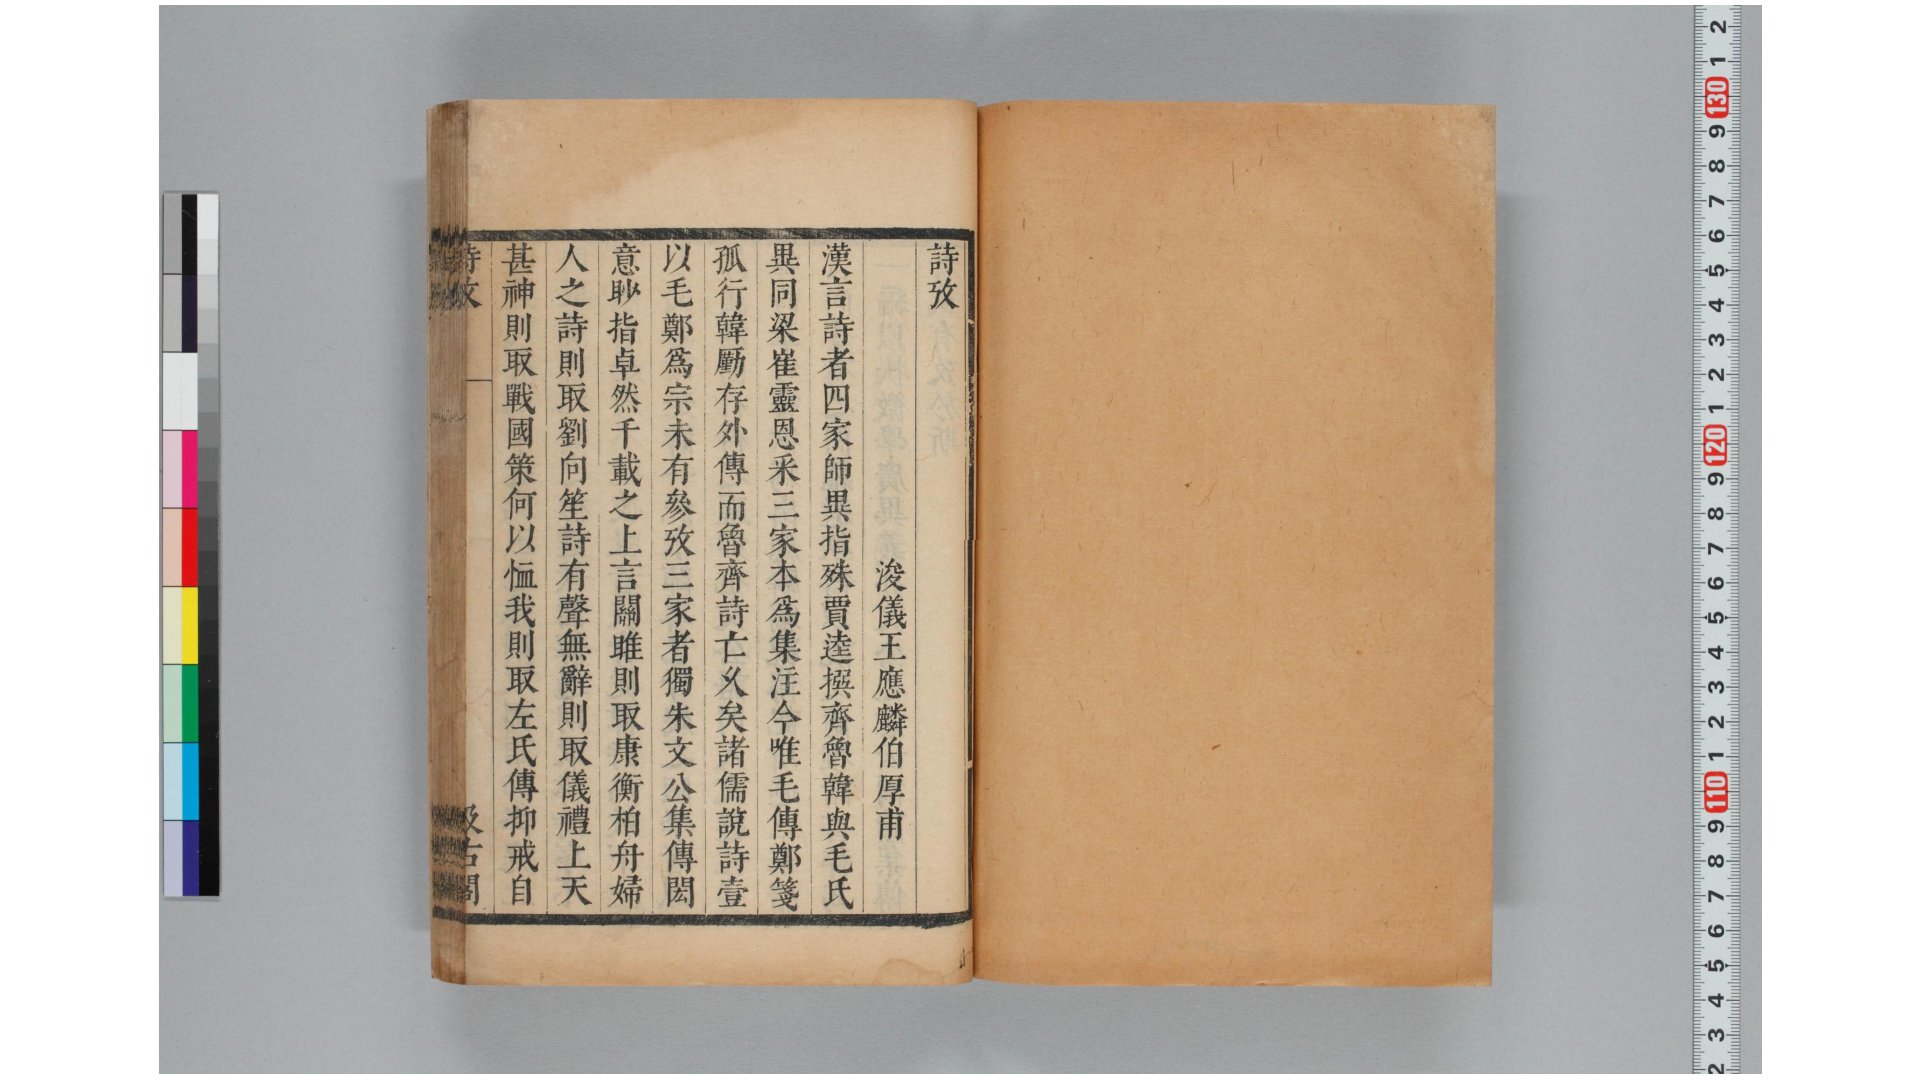 詩攷
浚儀王應麟伯厚甫
漢言詩者四家師異指殊賈逵撰齊魯韓與毛氏
異同梁崔靈恩采三家本爲集注今唯毛傳鄭箋
孤行韓勵存外傳而魯齊詩亡久矣諸儒說詩壹
以毛鄭爲宗未有參攷三家者獨朱文公集傳閎
意眇指卓然千載之上言關雎則取康衡柏舟婦
人之詩則取劉向笙詩有聲無辭則取儀禮上天
甚神則取戰國策何以恤我則取左氏傳抑戒自
詩攷
汲古閣
2
1
130
9
8
7
6
5
4
3
2
1
120
9
8
7
6
5
4
3
2
1
110
9
8
7
6
5
4
3
2